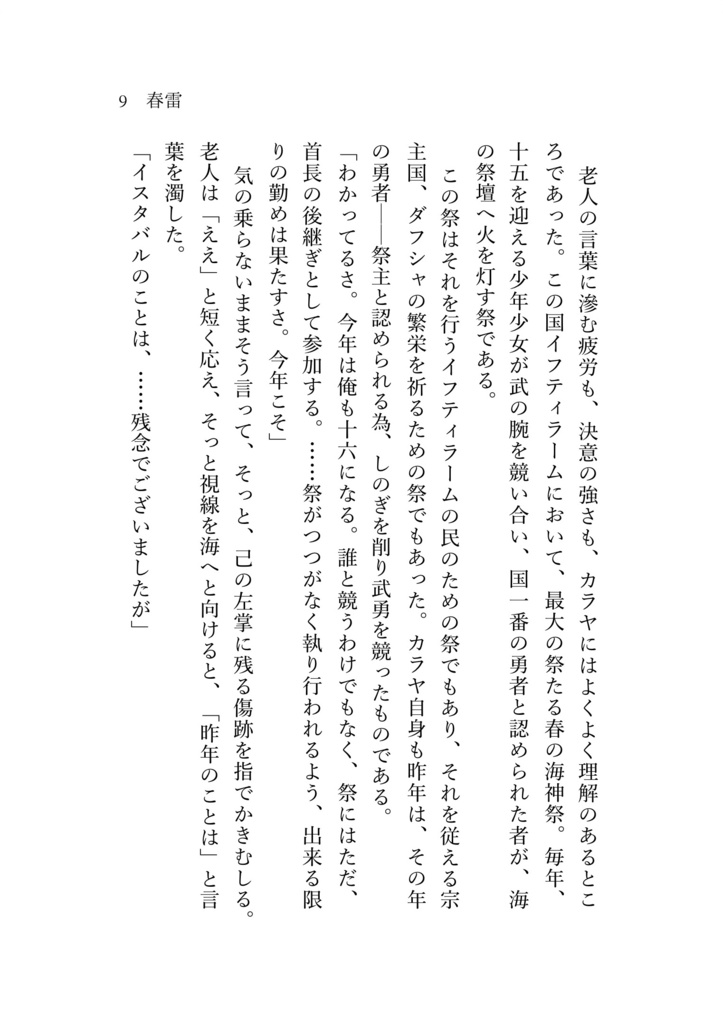 9　春雷
　老人の言葉に滲む疲労も、決意の強さも、カラヤにはよくよく理解のあるとこ
ろであった。この国イフティラームにおいて、最大の祭たる春の海神祭。毎年、
十五を迎える少年少女が武の腕を競い合い、国一番の勇者と認められた者が、海
の祭壇へ火を灯す祭である。
　この祭はそれを行うイフティラームの民のための祭でもあり、それを従える宗
主国、ダフシャの繁栄を祈るための祭でもあった。カラヤ自身も昨年は、その年
の勇者――祭主と認められる為、しのぎを削り武勇を競ったものである。
「わかってるさ。今年は俺も十六になる。誰と競うわけでもなく、祭にはただ、
首長の後継ぎとして参加する。……祭がつつがなく執り行われるよう、出来る限
りの勤めは果たすさ。今年こそ」
　気の乗らないままそう言って、そっと、己の左掌に残る傷跡を指でかきむしる。
老人は「ええ」と短く応え、そっと視線を海へと向けると、「昨年のことは」と言
葉を濁した。
「イスタバルのことは、……残念でございましたが」